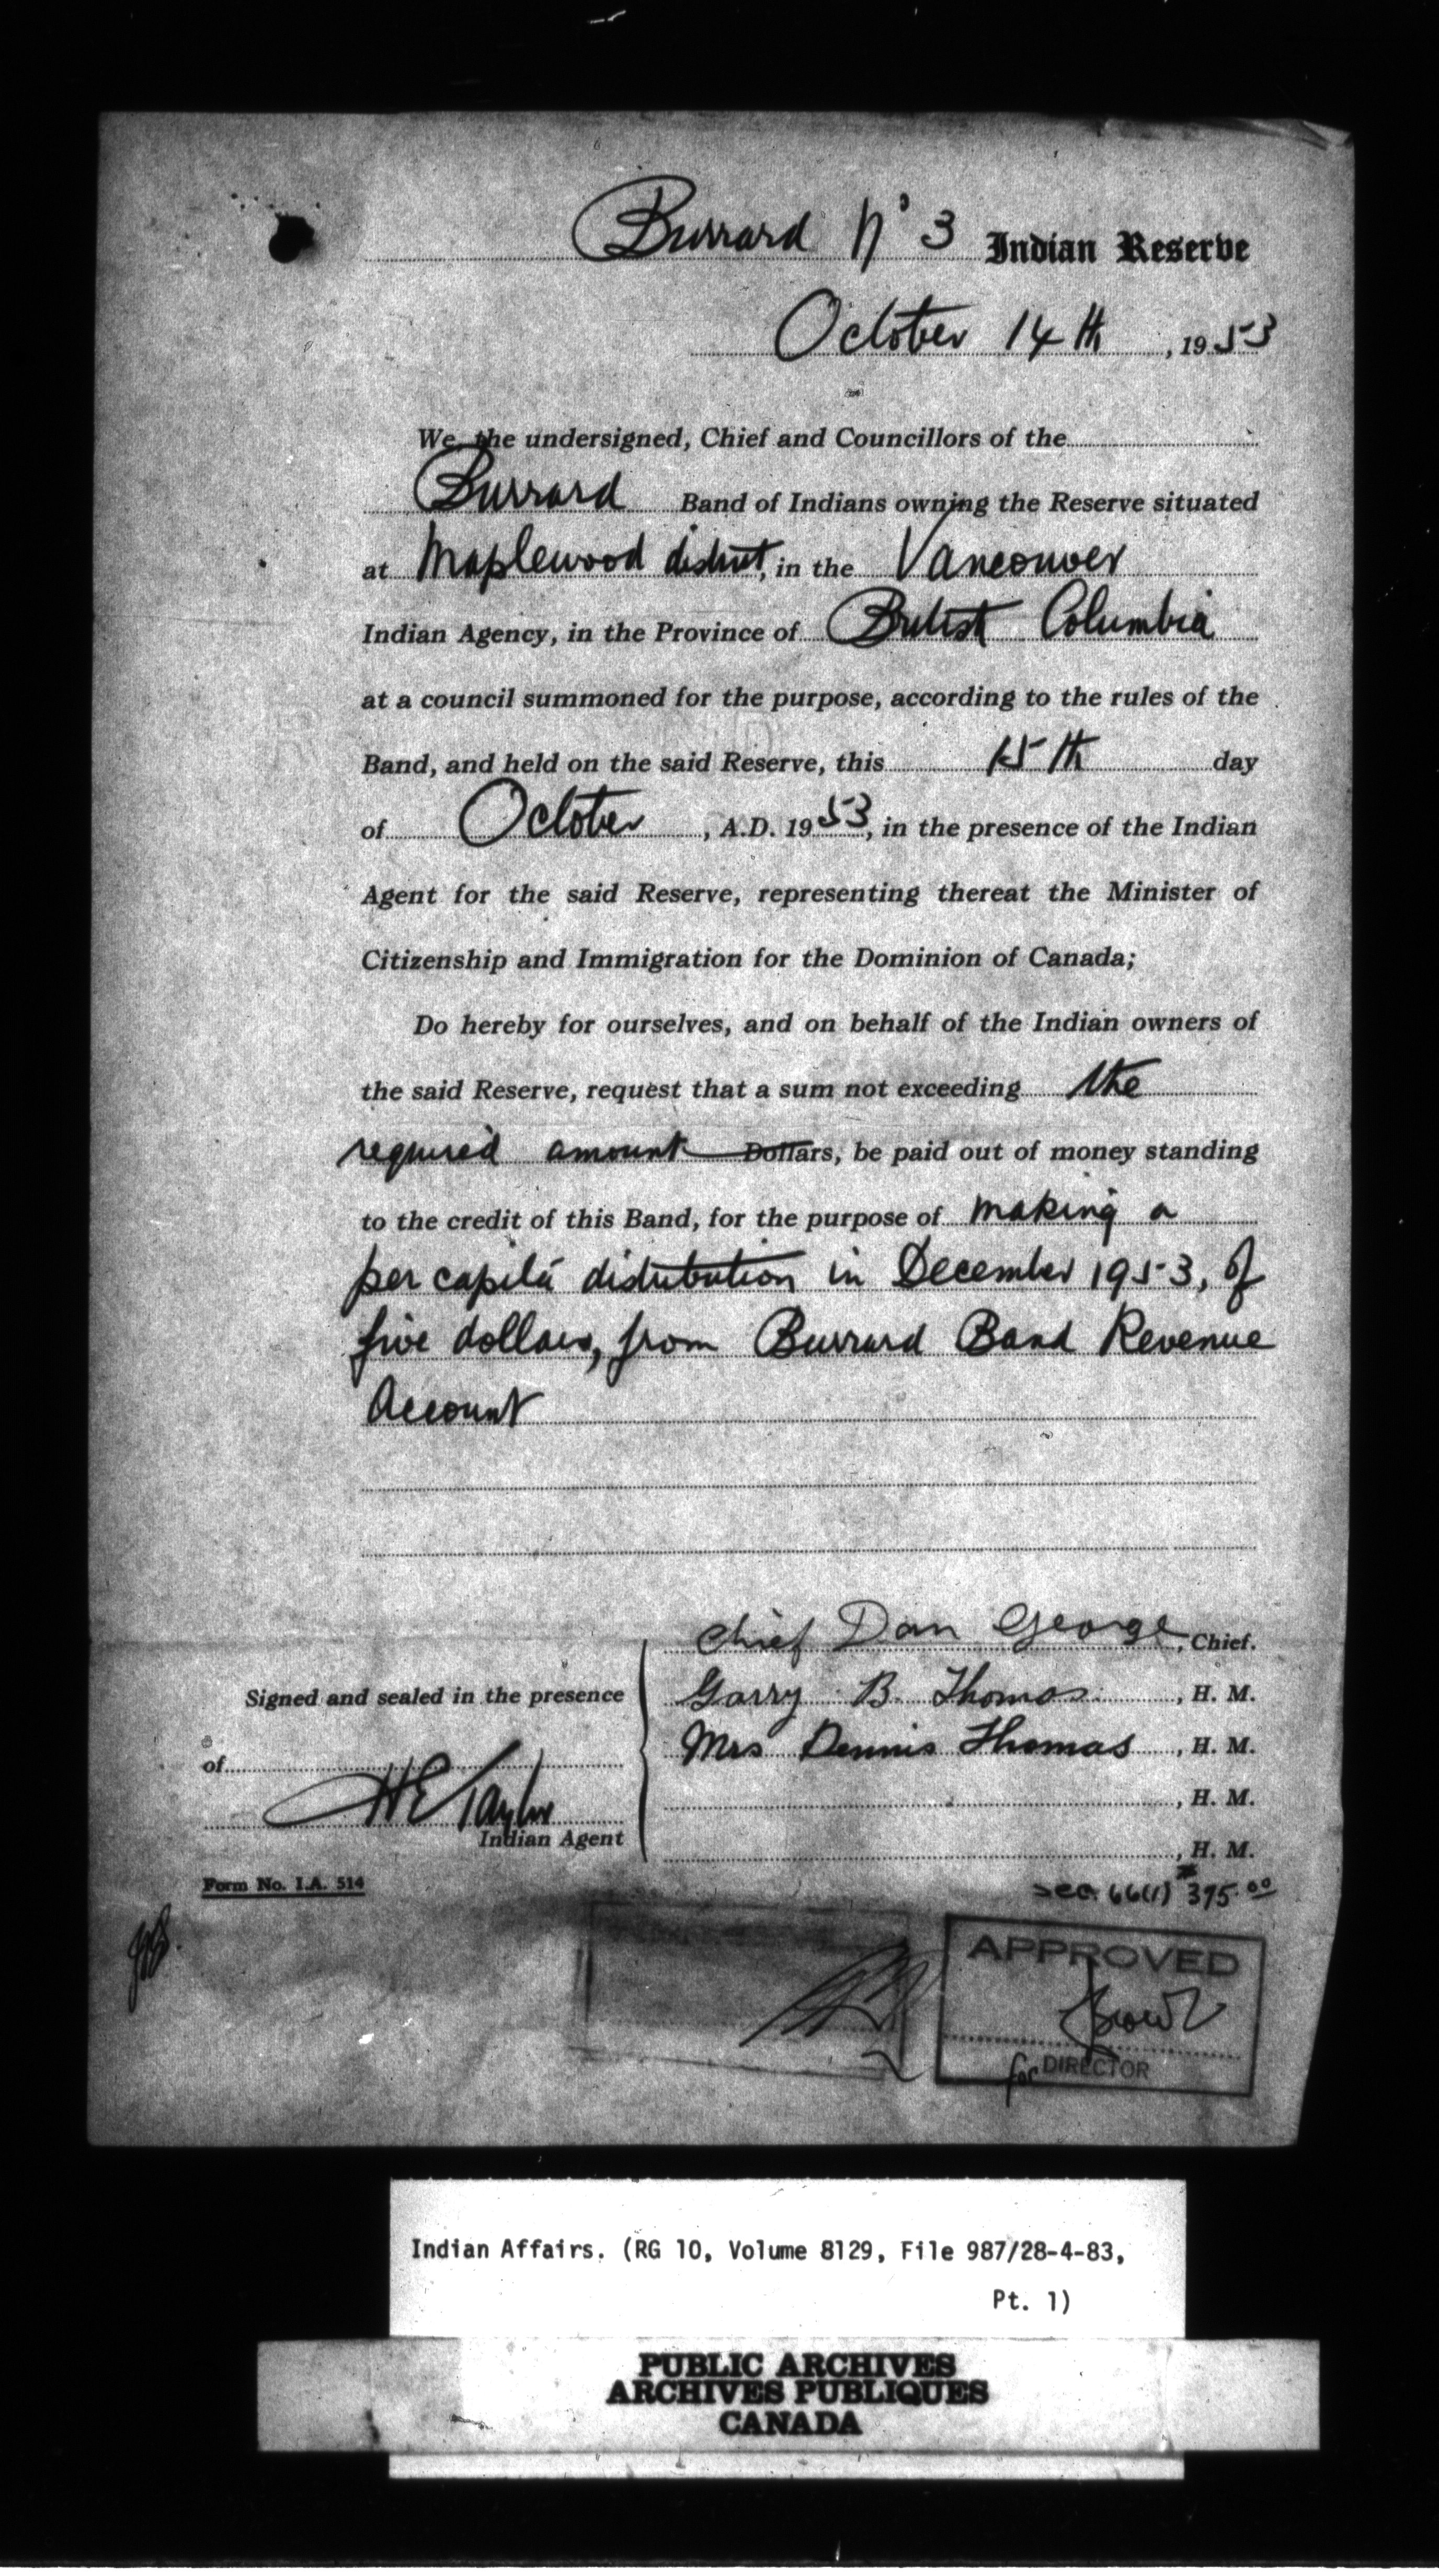 Burrard N° 3 Indian Reserve
October 14th, 1953
We the undersigned, Chief and Councillors of the
Burrard Band of Indians owning the Reserve situated
at Maplewood district, in the Vancouver
Indian Agency, in the Province of British Columbia
at a council summoned for the purpose, according to the rules of the
Band, and held on the said Reserve, this 15th day
of October, A.D. 1953, in the presence of the Indian
Agent for the said Reserve, representing thereat the Minister of
Citizenship and Immigration for the Dominion of Canada;
Do hereby for ourselves, and on behalf of the Indian owners of
the said Reserve, request that a sum not exceeding the
required amount Dollars, be paid out of money standing
to the credit of this Band, for the purpose of making a
per capita distribution in December 1953, of
five dollars, from Burrard Band Revenue
Account
Chief Dan George, Chief.
Signed and sealed in the presence
Garry B. Thomas, H. M.
of
Mrs Dennis Thomas, H. M.
HE Taylor
, H. M.
Indian Agent
, H. M.
Form No. I.A. 514
Sec. 66(1) $395.00
APPROVED
for DIRECTOR
Indian Affairs. (RG 10, Volume 8129, File 987/28-4-83,
Pt. 1)
PUBLIC ARCHIVES
ARCHIVES PUBLIQUES
CANADA